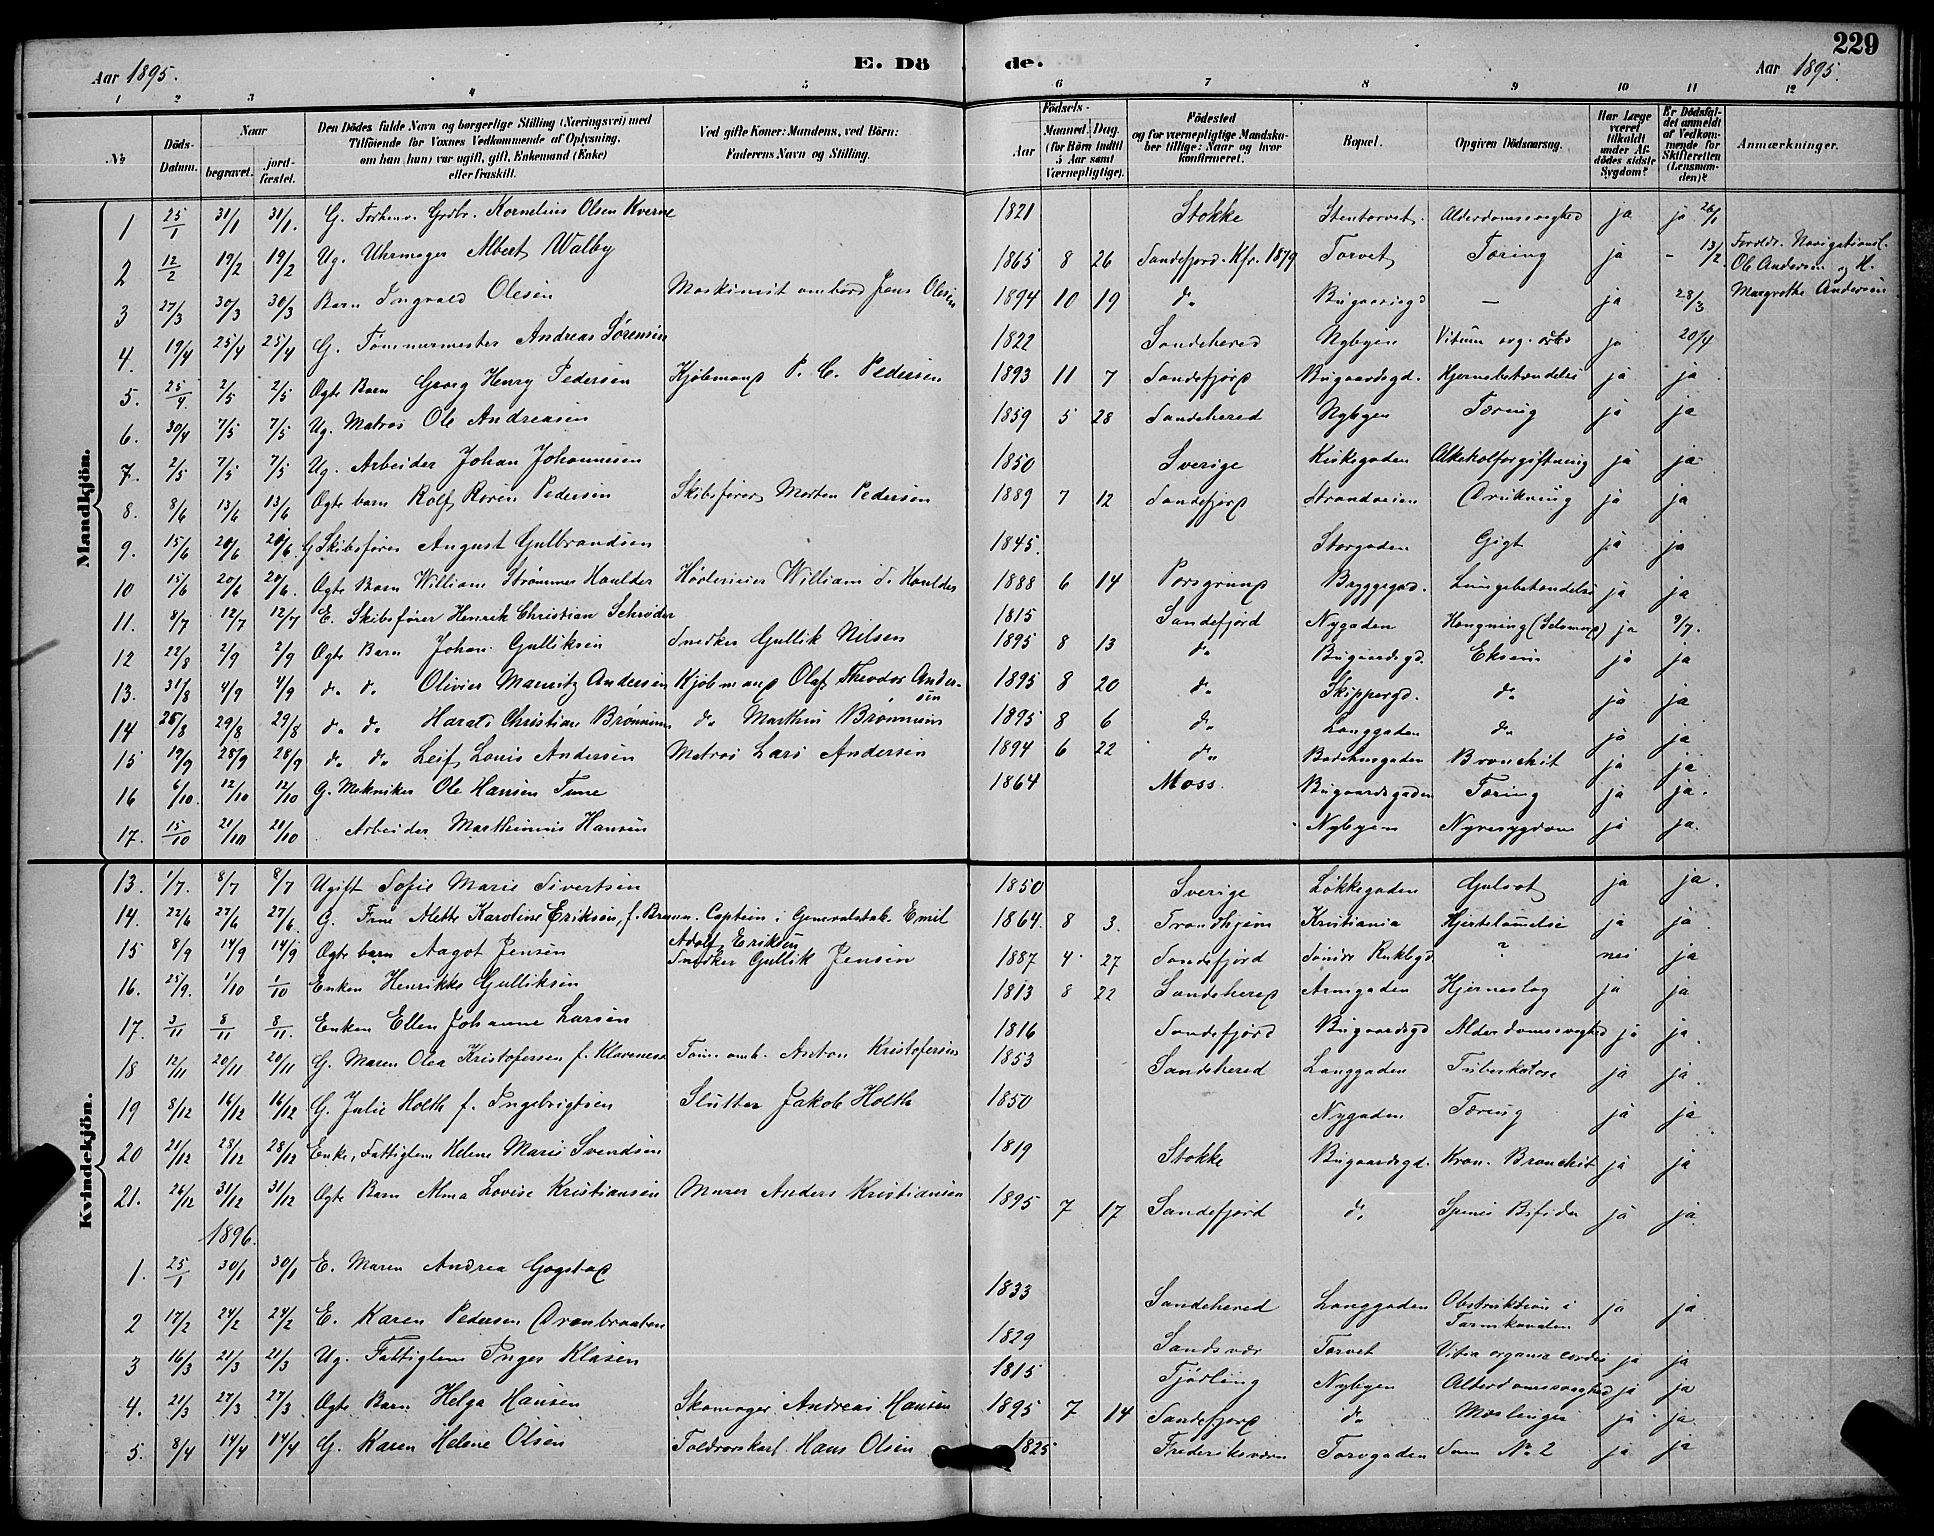 229
Aar 1895. E. Dö de. Aar 1895.
1 2 3 4 5 6 7 8 9 10 11 12
№ Döds-Datum. Naar begravet. jordfæstet. Den Dödes fulde Navn og borgerlige Stilling (Næringsvei) med Tilföiende for Voxnes Vedkommende af Oplysning, om han (hun) var ugift, gift, Enkemand (Enke) eller fraskilt. Ved gifte Koner: Mandens, ved Börn: Faderens Navn og Stilling. Födsels- Aar Maaned. Dag. (for Börn indtil 5 Aar samt Værnepligtige). Födested og for værnepligtige Mandskaber tillige: Naar og hvor konfirmeret. Bopæl. Opgiven Dödsaarsag. Har Læge været tilkaldt under Afdödes sidste Sygdom? Er Dödsfaldet anmeldt af Vedkommende for Skifteretten (Lensmanden)? Anmærkninger.
Mandkjön.
1 25/1 31/1 31/1. G. Forhenv. Grdbr. Kornelius Olsen Kverne 1821 Stokke Stentorvet. Alderdomssvaghed ja ja 26/1
2 12/2 19/2 19/2 Ug. Uhrmager Albert Walby 1865 8 26 Sandefjord. Kfr. 1879 Torvet Tæring ja - 13/2 Forældr. Navigationsl. Ole Andersen og H. Margrethe Andersen
3 27/3 30/3 30/3 Barn Ingvald Olesen Maskinist ombord Jens Olesen 1894 10 19 do Bugaardsgd — ja 28/3
4. 19/4 25/4 25/4 G. Tømmermester Andreas Sørensen 1822 Sandehered Nybyen Vitium org. ja 20/4
5. 25/4. 2/5 2/5 Ægte Barn Georg Henry Pedersen Kjøbmand P. C. Pedersen 1893 11 7 Sandefjord Bugaardsgd. Hjernebetændelse ja ja
6. 30/4 7/5 7/5 Ug. Matros Ole Andreasen 1859 5 28 Sandehered Nybyen Tæring ja ja
7. 2/5 7/5 7/5 Ug. Arbeider Johan Johannesen 1850 Sverige Kirkegaden Alkeholforgiftning ja ja
8. 8/6 13/6 13/6 Ægte barn Rolf Roren Pedersen Skibsfører Morten Pedersen 1889 7 12 Sandefjord Strandveien Drukning ja ja
9. 15/6 20/6 20/6. G Skibsfører August Gulbrandsen 1845. Storgaden Gigt ja ja
10 15/6 20/6 20/6. Ægte Barn William Strømmer Houlder William S. Houlder 1888 6 14 Porsgrund Bryggegad. Lungebetændelse ja ja
11. 8/7 12/7 12/7 E. Skibsfører Henrik Christian Schrøder 1815 Sandefjord Nygaden Hengning (Selvmord) ja 9/7.
12 22/8 2/9 2/9 Ægte Barn Johan Gulliksen Snedker Gullik Nilsen 1895 8 13 do Bugaardsgd. ja ja
13. 31/8 4/9 4/9 do do Olivier Mauritz Andersen Kjøbmand Olaf Theodor Andersen 1895 8 20 do Skippergd. do ja ja
14 25/8 29/8 29/8 do do Harald Christian Brønnum do Marthin Brønnum 1895 8 6 do Langgaden do ja ja
15 19/9 28/9 28/9 do do Leif Louis Andersen Matros Lars Andersen 1894 6 22 do Badehusgaden Bronchit ja ja
16 6/10. 12/10 12/10 G. Mekniker Ole Hansen Tune 1864 Moss. Bugaardsgaden Tæring ja ja.
17. 15/10 21/10 21/10 Arbeider Marthinius Hansen Nybyen Nyresygdom ja ja.
Kvindekjön.
13. 1/7. 8/7 8/7 Ugift Sofie Marie Sivertsen 1850 Sverige Løkkegaden Gulsot ja ja.
14. 22/6 27/6 27/6. G. Frue Mette Karoline Eriksen, f. Braun. Captein i Generalstab. Emil Adolf Eriksen 1864. 8 3. Trondhjem Kristiania Hjertelamelse ja ja
15 8/9 14/9 14/9 Ægte barn Aagot Jensen Snedker Gullik Jensen 1887 4. 27 Sandefjord Søndre ? nei ja
16. 25/9. 1/10 1/10 Enken Henrikke Gulliksen 1813 8 22 Sandehered Hjerneslag ja ja
17. 3/11 8/11 8/11. Enken Ellen Johanne Larsen 1816 Sandefjord Bugaardsgd Alderdomssvaghed ja ja.
18 12/11 20/11 20/11 G. Maren Olea Kristofersen f. Klavenes Tøm. omb. Anton Kristofersen 1853 Sandehered Langgaden Tuberkulose ja ja.
19 8/12 16/12 16/12 G. Julie Holth f. Ingebrigtsen Slutter Jakob Holth 1850 Nygaden Tæring ja ja
20 21/12 28/12 28/12 Enke, Fattiglem Helene Marie Svendsen 1819 Stokke Bugaardsgd. Kron. Bronchit ja ja
21. 26/12 31/12 31/12 Ægte Barn Alma Lovise Kristiansen Murer Anders Kristiansen 1895 7 17 Sandefjord do Spina Bifida ja ja.
1896.
1. 25/1 30/1 30/1 E. Maren Andrea Gogstad 1833 Sandehered Langgaden Obstruktion i Tarmkanalen ja ja
2 17/2 24/2 24/2 E. Karen Pedersen 1829 Sandsvær Torvet Vitia organis cordis ja ja
3 16/3 21/3 21/3 Ug. Fattiglem Inger Klasen 1815 Tjølling Nybyen Alderdomssvaghed ja ja
4. 21/3 27/3 27/3 Ægte Barn Helga Hansen Skomager Andreas Hansen 1895 7 14 Sandefjord do Mæslinger ja ja
5. 8/4 14/4 14/4 G. Karen Helene Olsen Toldrorskarl Hans Olsen 1825 Frederiksværn Torvgaden Som № 2 ja ja